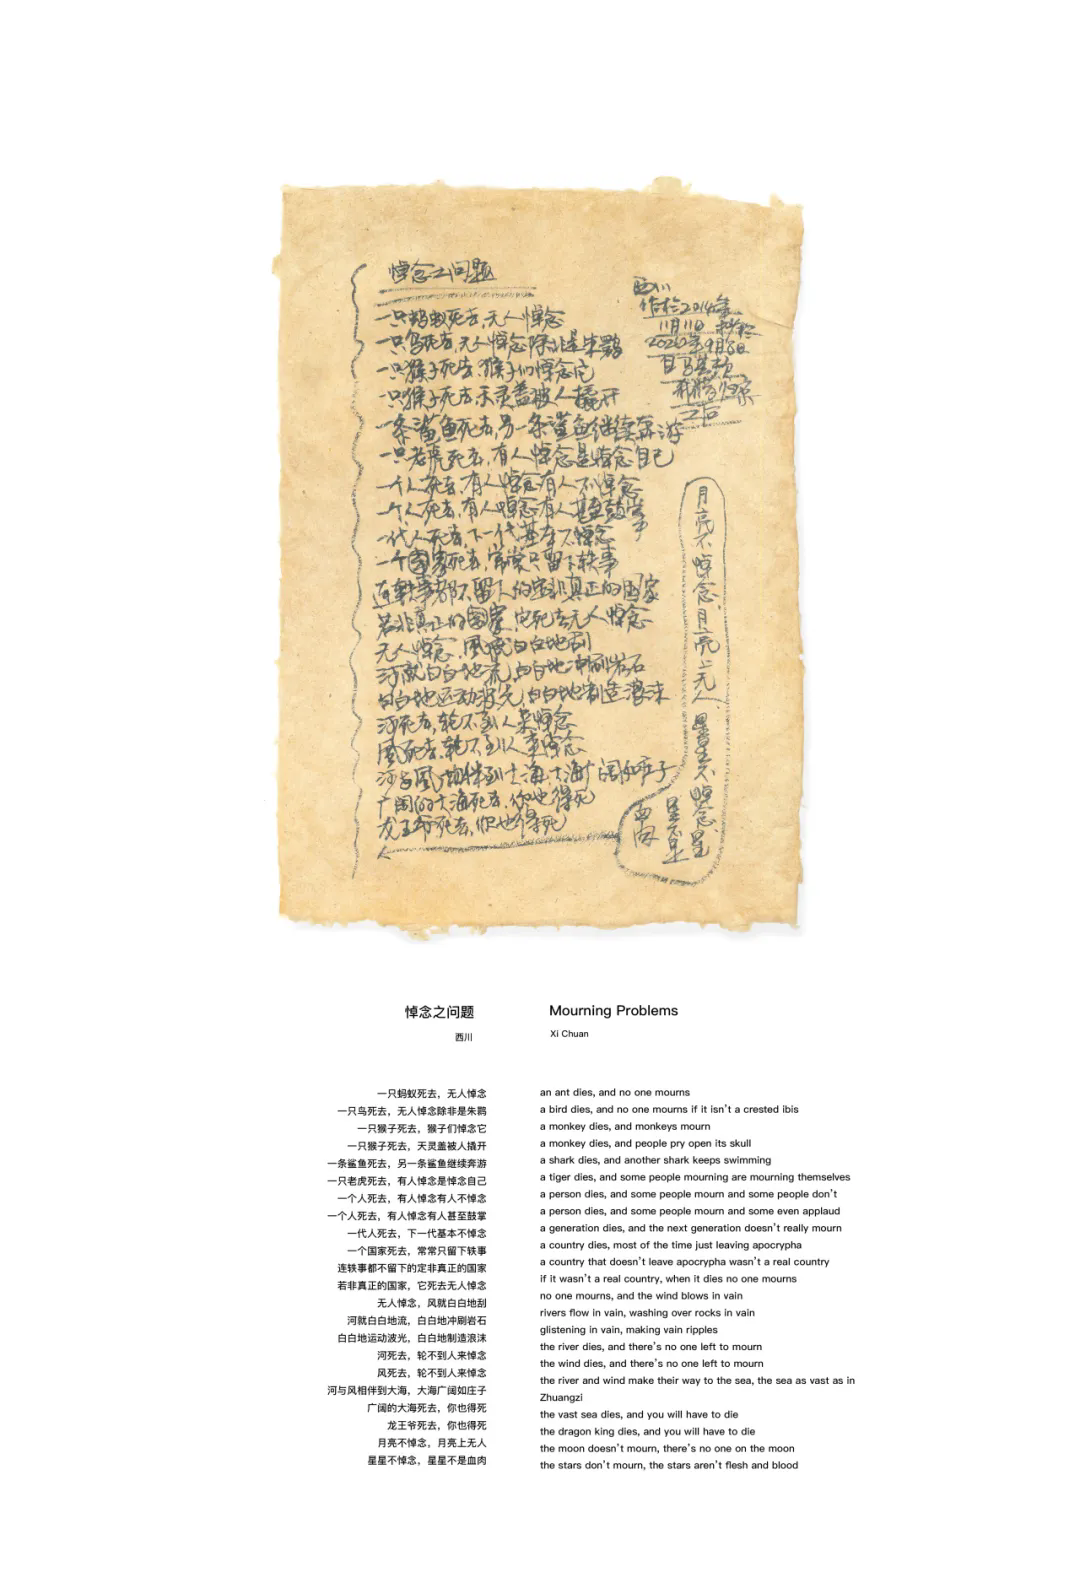 悼念之问题
一只蚂蚁死去,无人悼念
一只鸟死去,无人悼念除非是朱鹮
一只猴子死去,猴子们悼念它
一只猴子死去,天灵盖被人撬开
一条鲨鱼死去,另一条鲨鱼继续奔游
一只老虎死去,有人悼念是悼念自己
一个人死去,有人悼念有人不悼念
一个人死去,有人悼念有人甚至鼓掌
一代人死去,下一代基本不悼念
一个国家死去,常常只留下轶事
连轶事都不留下的定非真正的国家
若非真正的国家,它死去无人悼念
无人悼念,風就白白地刮
河就白白地流,白白地冲刷岩石
白白地运动波光,白白地制造浪沫
河死去,轮不到人来悼念
風死去,轮不到人来悼念
河与風相伴到大海,大海广阔如庄子
广阔的大海死去,你也得死
龙王爷死去,你也得死
西川
作於2014年
11月11日 抄於
2020年9月8日
自马其顿
之后
月亮不悼念,月亮上无人
星星不悼念,星
星不是
血肉
悼念之问题
西川
一只蚂蚁死去，无人悼念
一只鸟死去，无人悼念除非是朱鹮
一只猴子死去，猴子们悼念它
一只猴子死去，天灵盖被人撬开
一条鲨鱼死去，另一条鲨鱼继续奔游
一只老虎死去，有人悼念是悼念自己
一个人死去，有人悼念有人不悼念
一个人死去，有人悼念有人甚至鼓掌
一代人死去，下一代基本不悼念
一个国家死去，常常只留下轶事
连轶事都不留下的定非真正的国家
若非真正的国家，它死去无人悼念
无人悼念，风就白白地刮
河就白白地流，白白地冲刷岩石
白白地运动波光，白白地制造浪沫
河死去，轮不到人来悼念
风死去，轮不到人来悼念
河与风相伴到大海，大海广阔如庄子
广阔的大海死去，你也得死
龙王爷死去，你也得死
月亮不悼念，月亮上无人
星星不悼念，星星不是血肉
Mourning Problems
Xi Chuan
an ant dies, and no one mourns
a bird dies, and no one mourns if it isn't a crested ibis
a monkey dies, and monkeys mourn
a monkey dies, and people pry open its skull
a shark dies, and another shark keeps swimming
a tiger dies, and some people mourning are mourning themselves
a person dies, and some people mourn and some people don't
a person dies, and some people mourn and some even applaud
a generation dies, and the next generation doesn't really mourn
a country dies, most of the time just leaving apocrypha
a country that doesn't leave apocrypha wasn't a real country
if it wasn't a real country, when it dies no one mourns
no one mourns, and the wind blows in vain
rivers flow in vain, washing over rocks in vain
glistening in vain, making vain ripples
the river dies, and there's no one left to mourn
the wind dies, and there's no one left to mourn
the river and wind make their way to the sea, the sea as vast as in
Zhuangzi
the vast sea dies, and you will have to die
the dragon king dies, and you will have to die
the moon doesn't mourn, there's no one on the moon
the stars don't mourn, the stars aren't flesh and blood